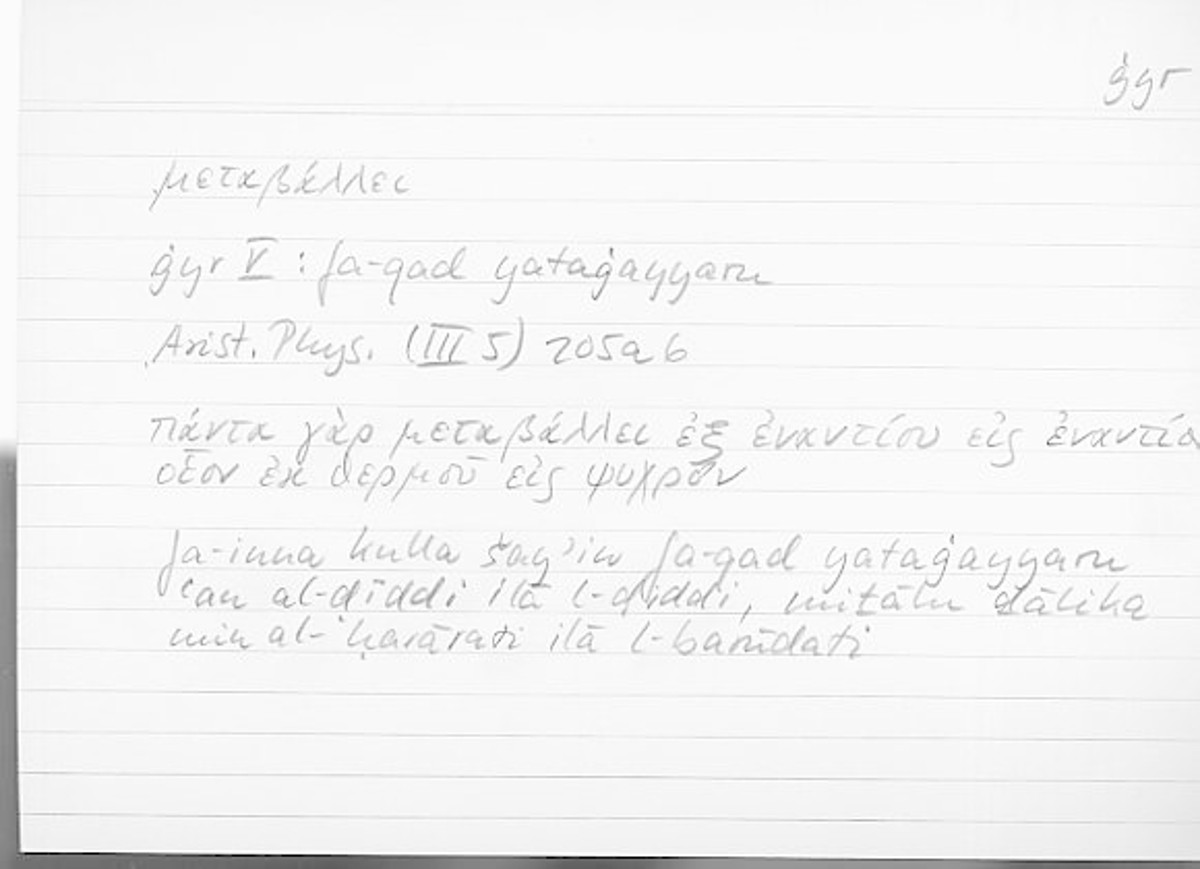 ġyr
μεταβάλλει
ġyr V : fa-qad yataġayyaru
Arist. Phys. (III 5) 205a6
πάντα γὰρ μεταβάλλει ἐξ ἐναντίου εἰς ἐναντίο
οἷον ἐκ θερμοῦ εἰς ψυχρόν
fa-inna kulla šayʾin fa-qad yataġayyaru
ʿan al-ḍiddi ilā l-ḍiddi, miṯālu ḏālika
min al-ḥarārati ilā l-burūdati